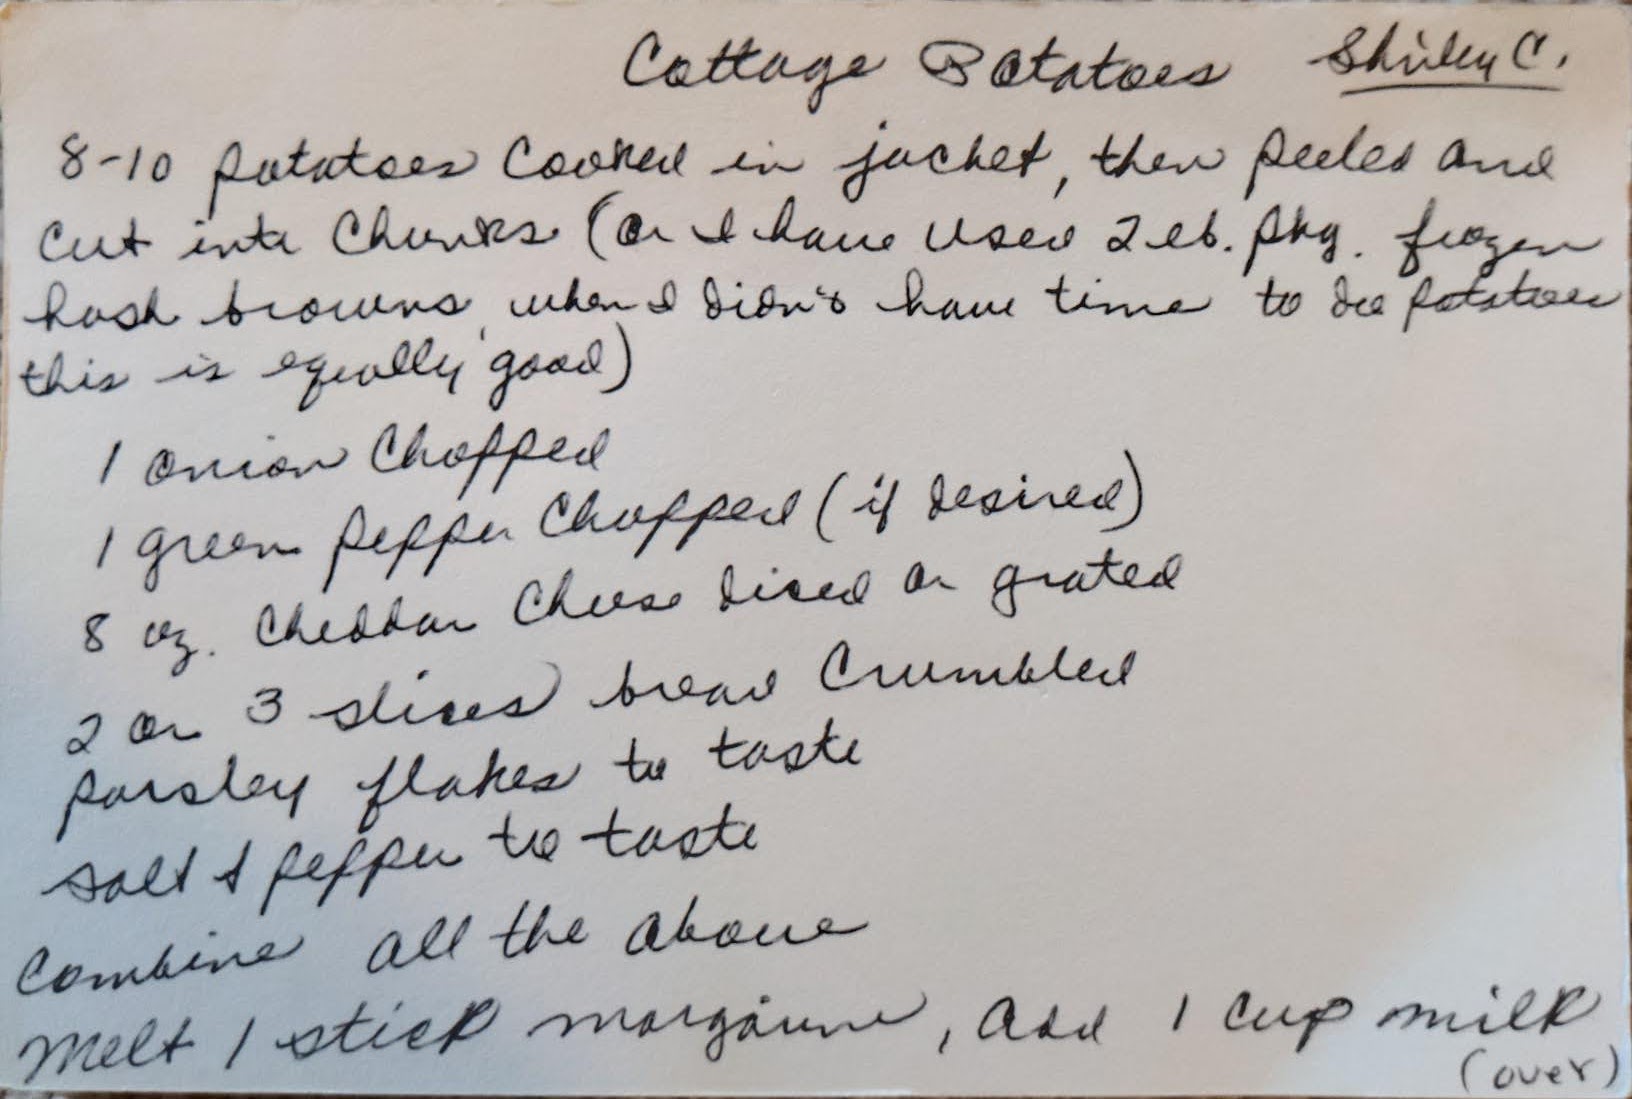 Cottage Potatoes Shirley C.
8-10 potatoes cooked in jacket, then peeled and
cut into chunks (or I have used 2 lb. pkg. frozen
hash browns, when I didn't have time to do potatoes
this is equally good)
1 onion chopped
1 green pepper chopped (if desired)
8 oz. cheddar cheese diced or grated
2 or 3 slices bread crumbled
parsley flakes to taste
salt & pepper to taste
Combine all the above
Melt 1 stick margarine, add 1 cup milk
(over)